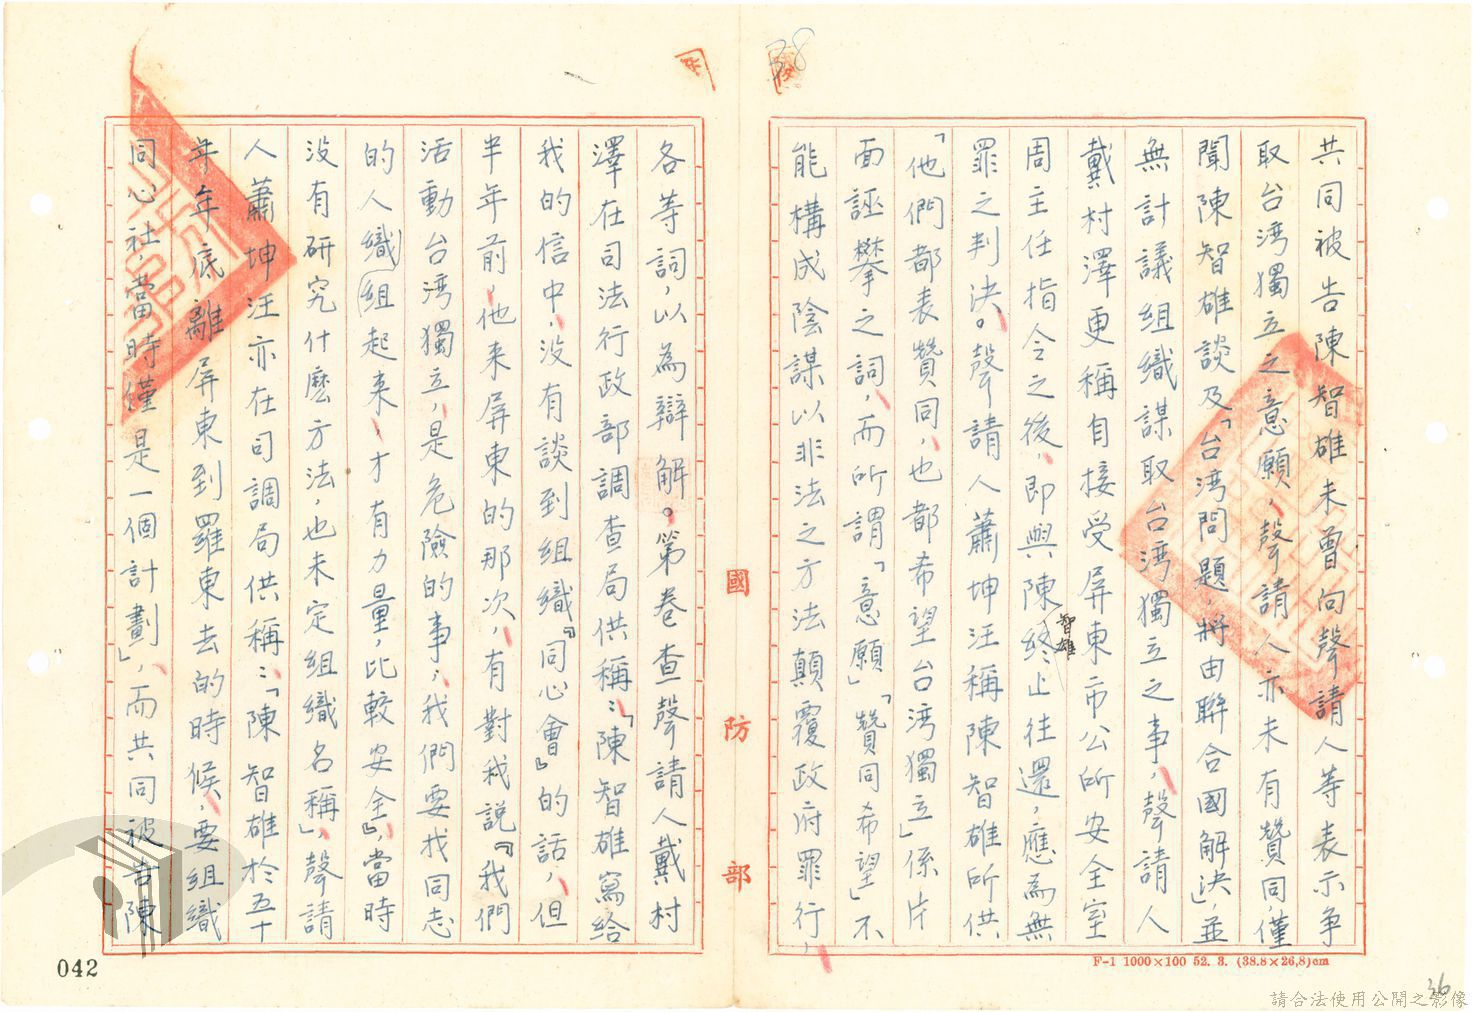 38
共同被告陳智雄未曾向聲請人等表示爭
取台湾獨立之意願，聲請人亦未有贊同僅
聞陳智雄談及「台湾問題，將由聯合國解決」，並
無計議組織謀取台湾獨立之事，聲請人
戴村澤更稱自接受屏東市公所安全室
周主任指令之後，即與陳智雄終止往還，應為無
罪之判決。聲請人蕭坤汪稱陳智雄所供
「他們都表贊同，也都希望台湾獨立」係片
面誣攀之詞，而所謂「意願」「贊同希望」不
能構成陰謀以非法之方法顛覆政府罪行，
各等詞，以為辯解。第卷查聲請人戴村
澤在司法行政部調查局供稱：「陳智雄寫給
我的信中，没有談到組織『同心會』的話，但
半年前，他来屏東的那次，有對我説『我們
活動台湾獨立，是危險的事，我們要找同志
的人織組起来，才有力量，比較安全』，當時
没有研究什麽方法，也未定組織名稱」，聲請
人蕭坤汪亦在司調局供稱：「陳智雄於五十
年年底離屏東到羅東去的時候，要組織
同心社，當時僅是一個計劃」，而共同被告陳
國防部
F-1 1000×100 52. 3. (38.8×26,8)cm
042
36
請合法使用公開之影像